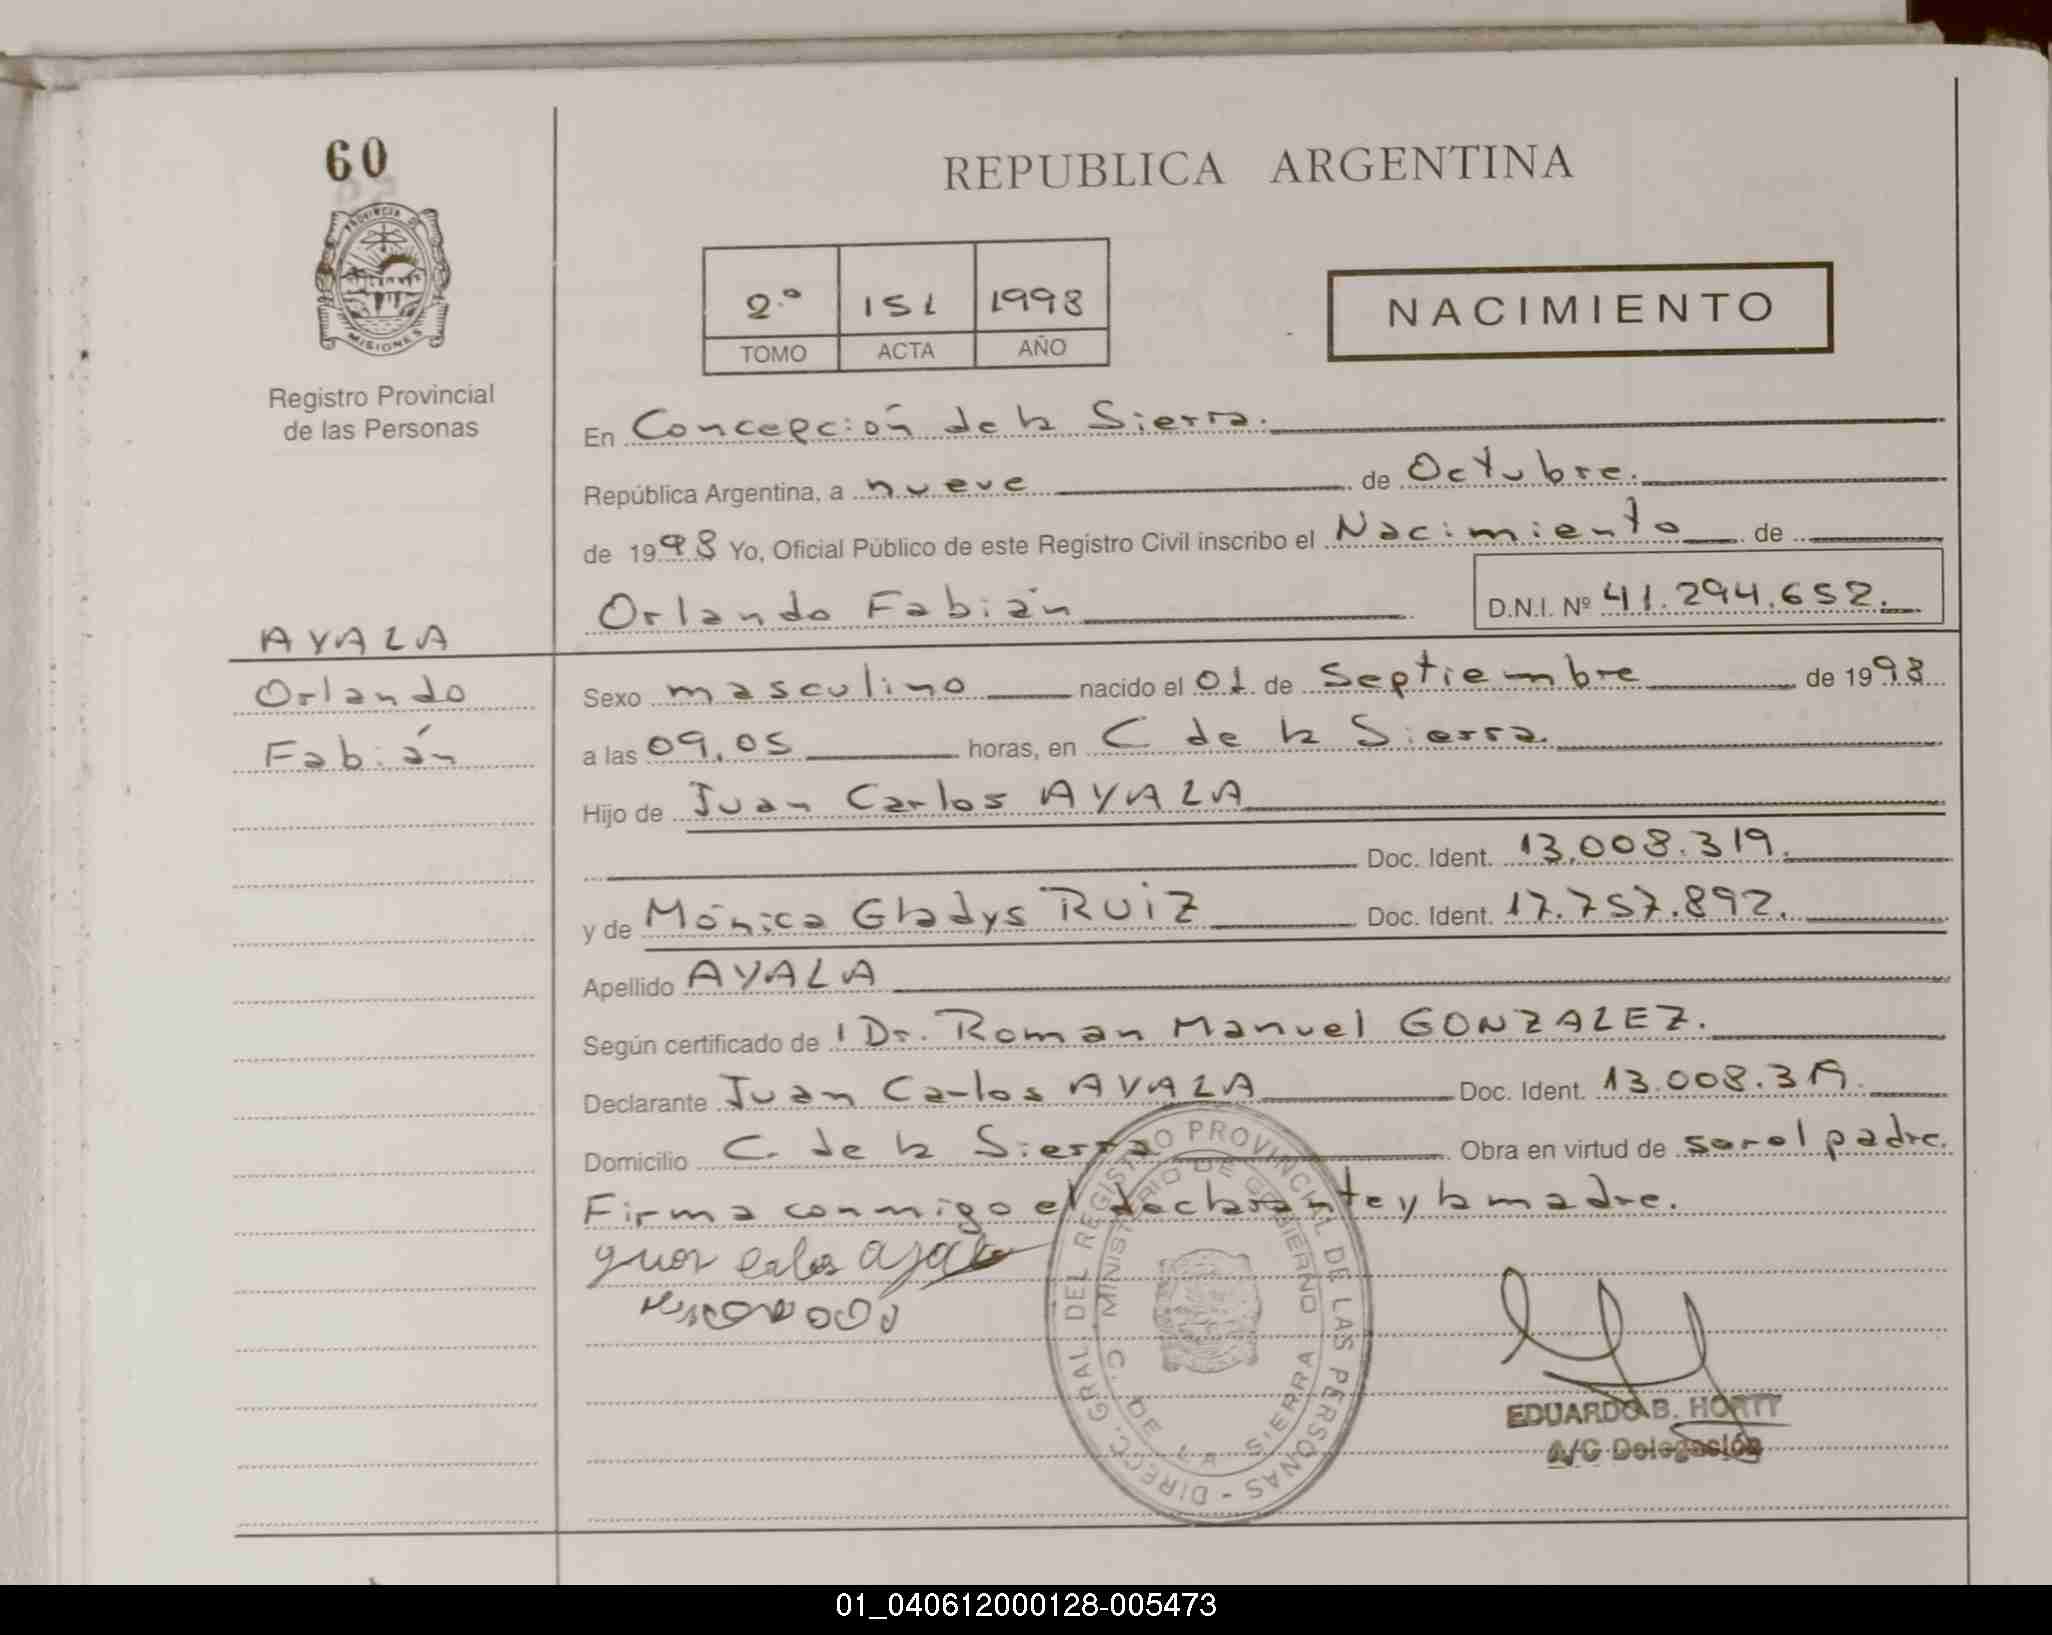 60
PROVINCIA D
MISIONES
Registro Provincial
de las Personas
REPUBLICA ARGENTINA
2.º 151 1998
TOMO ACTA AÑO
NACIMIENTO
En Concepción de la Sierra.
República Argentina, a nueve de Octubre.
de 1998 Yo, Oficial Público de este Registro Civil inscribo el Nacimiento de
Orlando Fabián D.N.I. Nº 41.294.652.
AYALA
Orlando
Fabián
Sexo masculino nacido el 01 de Septiembre de 1998
a las 09,05 horas, en C de la Sierra.
Hijo de Juan Carlos AYALA
Doc. Ident. 13.008.319.
y de Mónica Gladys RUIZ Doc. Ident. 17.757.892.
Apellido AYALA
Según certificado de 1 Dr. Roman Manuel GONZALEZ.
Declarante Juan Carlos AYALA Doc. Ident. 13.008.319.
Domicilio C. de la Sierra Obra en virtud de ser el padre.
Firma conmigo el declarante y la madre.
DIRECC. GRAL. DEL REGISTRO PROVINCIAL DE LAS PERSONAS -
MINISTERIO DE GOBIERNO
C. DE LA SIERRA
EDUARDO B. HORTT
A/C Delegación
01_040612000128-005473